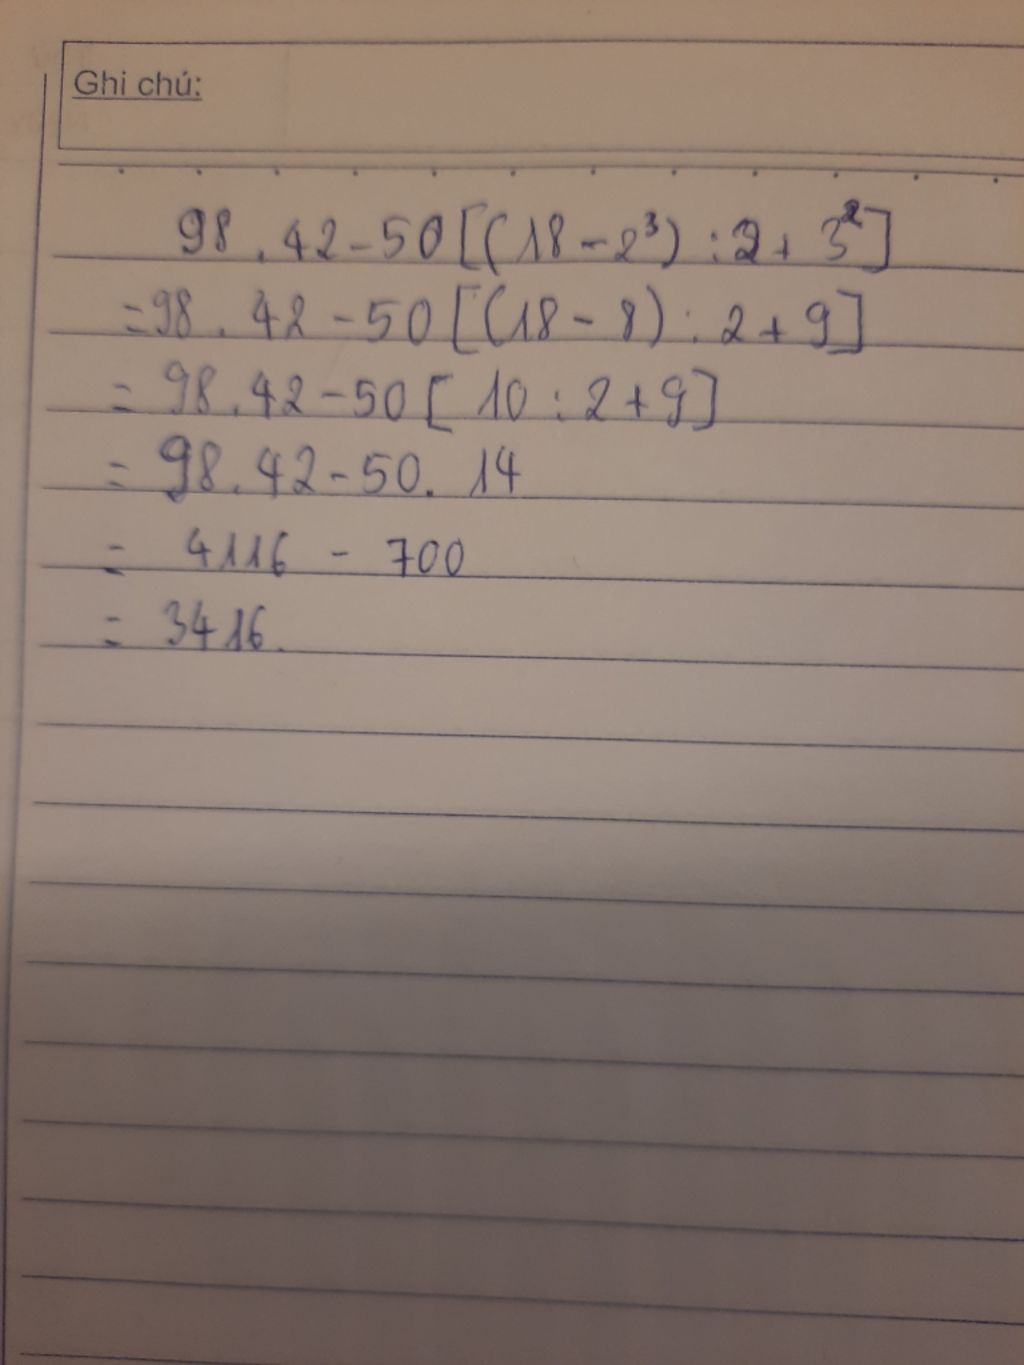 Ghi chú:
98 . 42 - 50 [(18 - 2³) : 2 + 3²]
= 98 . 42 - 50 [(18 - 8) : 2 + 9]
= 98 . 42 - 50 [ 10 : 2 + 9]
= 98 . 42 - 50 . 14
= 4116 - 700
= 3416.